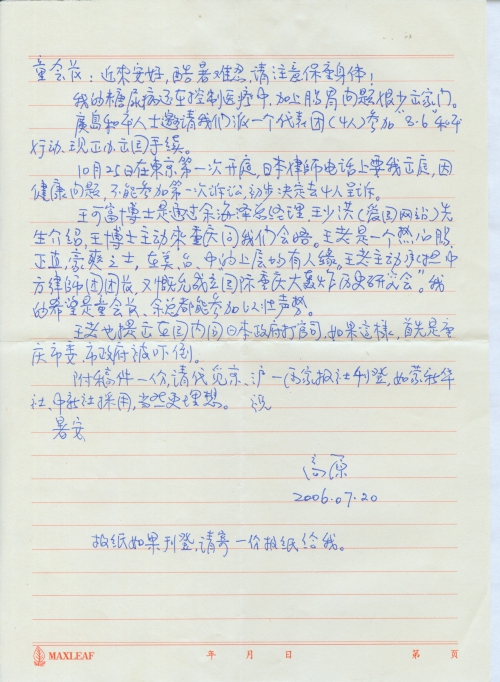 童会长：近来安好，酷暑难忍，请注意保重身体！
我的糖尿病还在控制医疗中，加上肠胃问题很少出家门。
廣島和平人士邀请我们派一个代表团（4人）参加“8.6”和平
行动、现正办出国手续。
10月25日在東京第一次开庭，日本律师电话上要我出庭，因
健康问题，不能参加第一次诉讼，初步决定去4人呈诉。
王可富博士是通过余海泽总经理 王少洪（爱国网站）先
生介绍，王博士主动來重庆同我们会晤。王老是一个热心肠
正直，豪爽之士，在美、台、中的上层均有人缘。王老主动承担中
方律师团团长，又慨允成立国际重庆大轰炸历史研究会”。我
的希望是童会长、余总都能参加以壮声势。
王老也提出在国内向日本政府打官司，如果這樣，首先是重
庆市委、市政府被吓倒。
附稿件一份，请代觅京、沪一两家报社刊登，如蒙新华
社、中新社採用，当然更理想。 祝
暑安
高原
2006.07.20
报纸如果刊登，请寄一份报纸给我。
MAXLEAF 年 月 日 第 页